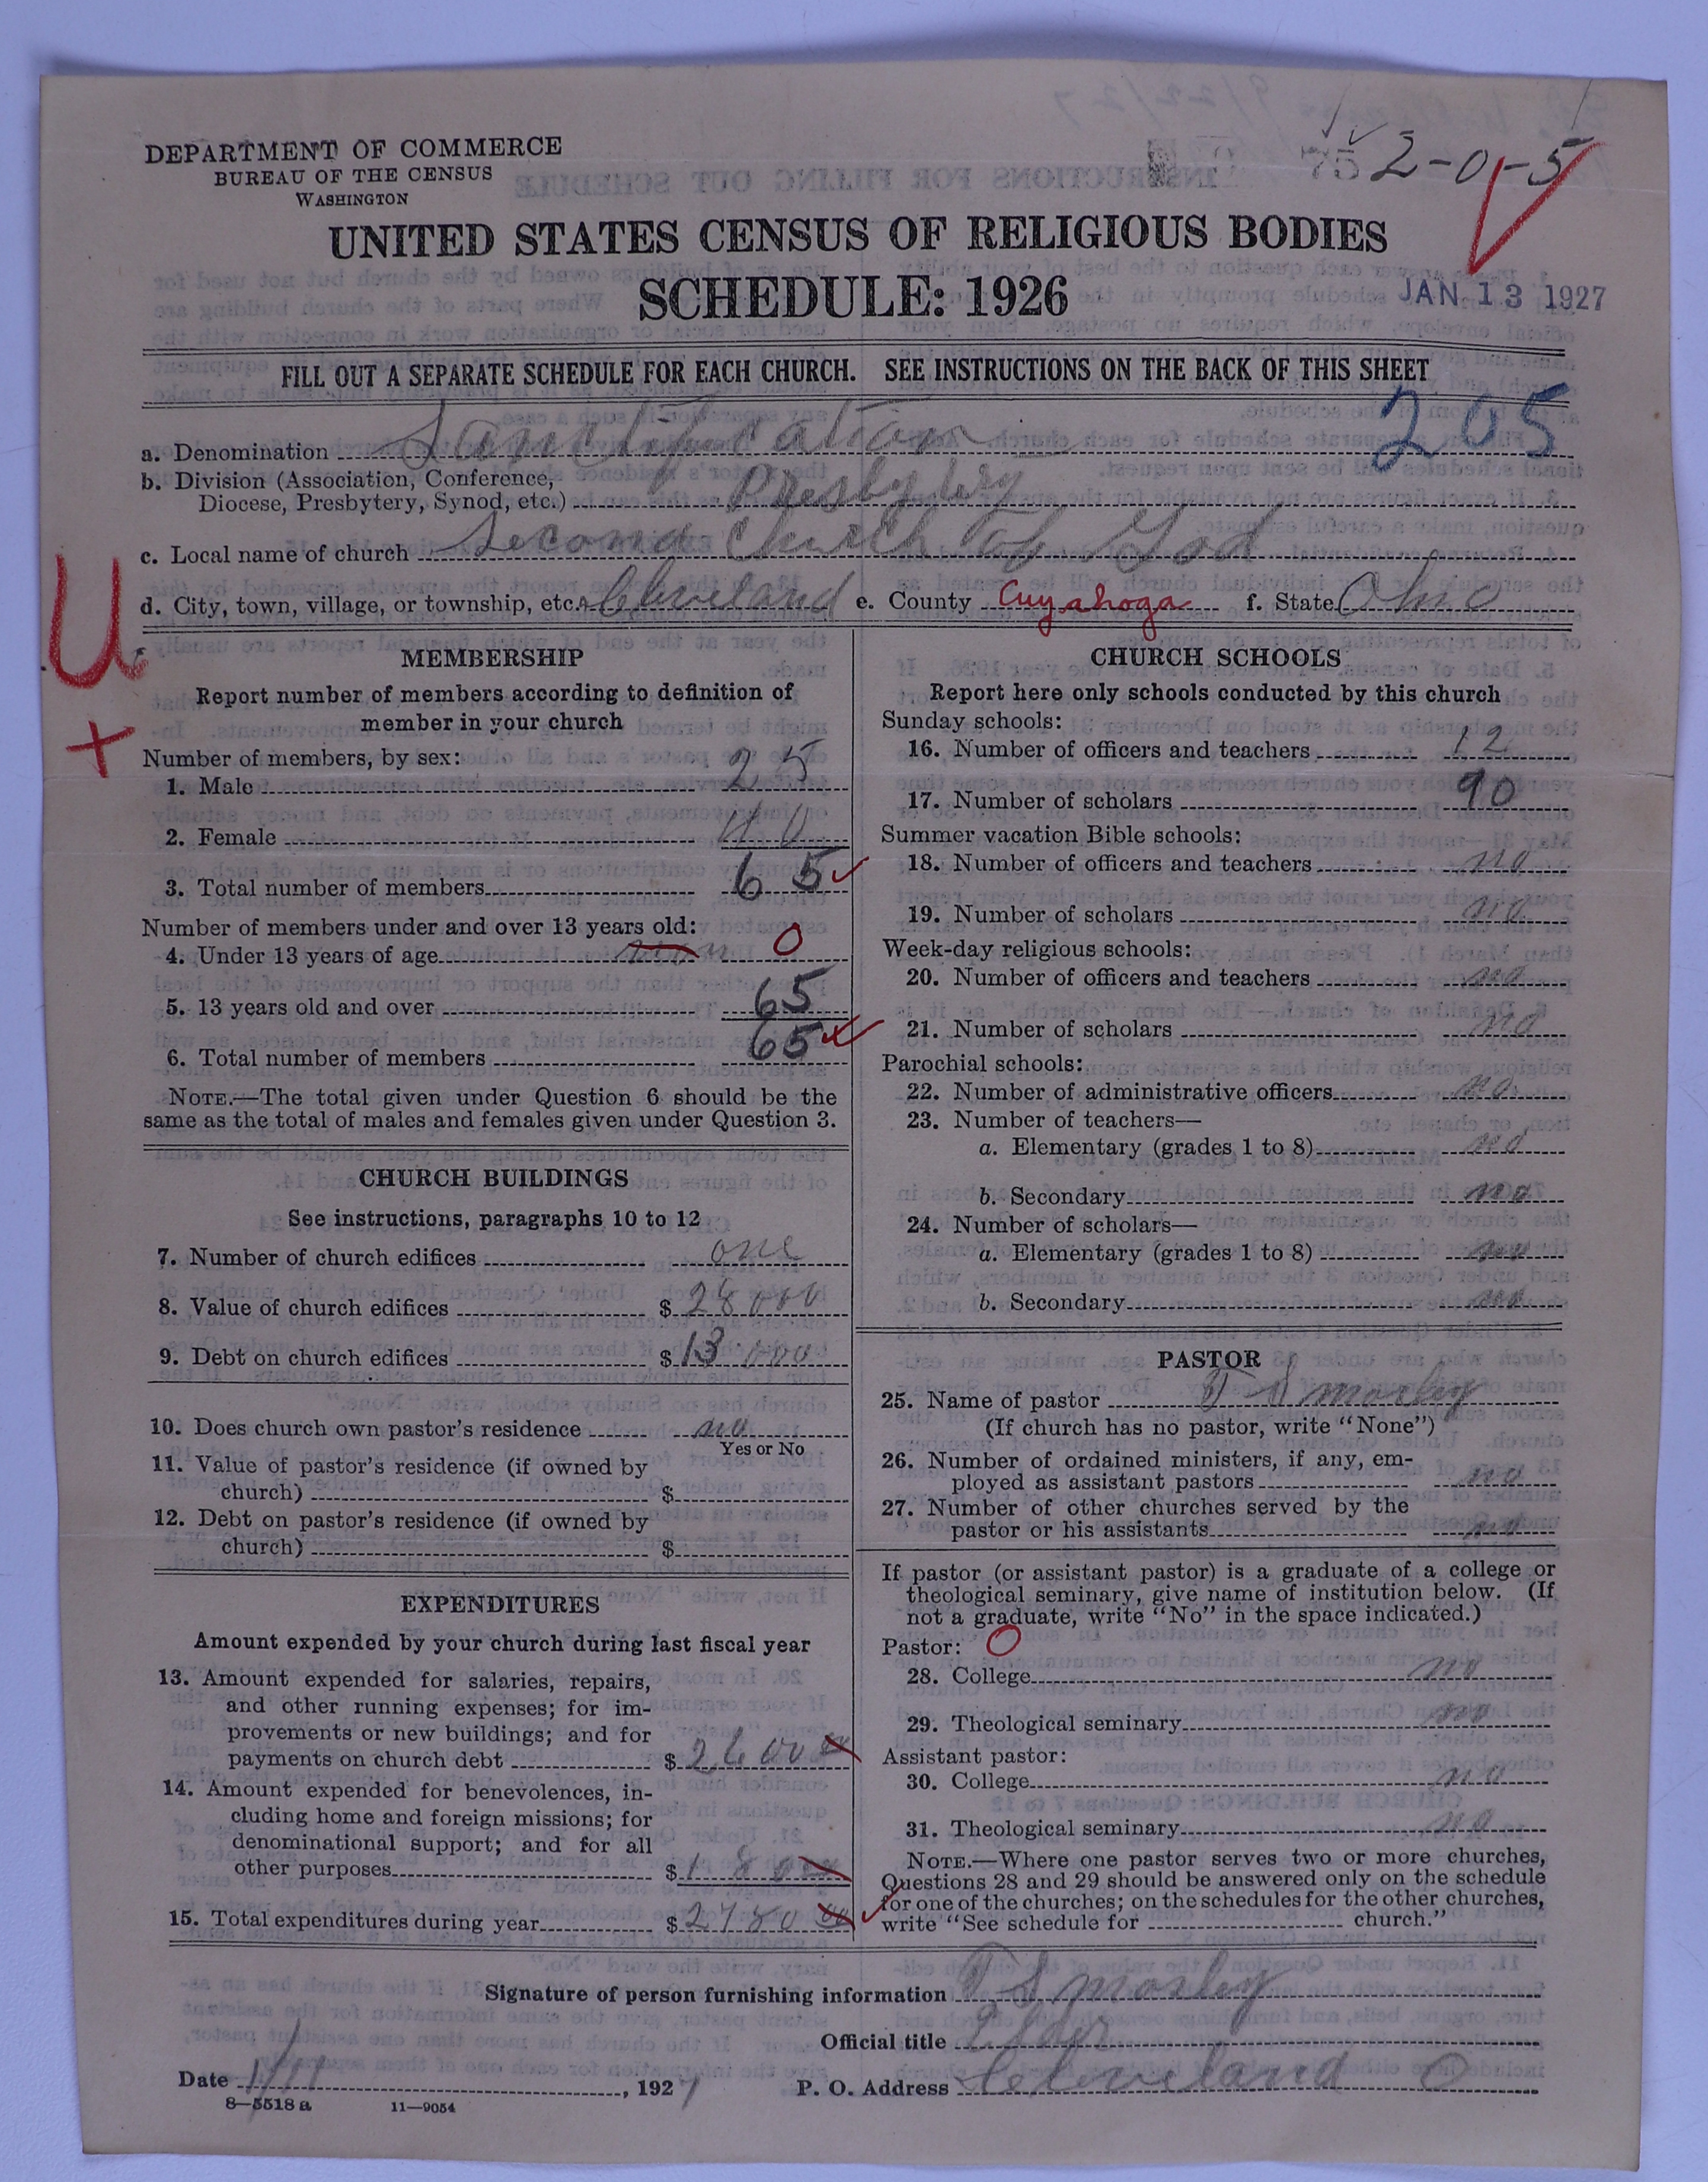 DEPARTMENT OF COMMERCE
BUREAU OF THE CENSUS
WASHINGTON
75 2-0-5
UNITED STATES CENSUS OF RELIGIOUS BODIES
SCHEDULE: 1926
JAN 13 1927
FILL OUT A SEPARATE SCHEDULE FOR EACH CHURCH. SEE INSTRUCTIONS ON THE BACK OF THIS SHEET
205
a. Denomination Sanctification
b. Division (Association, Conference,
Diocese, Presbytery, Synod, etc.) Presbytery
c. Local name of church Second Church of God
d. City, town, village, or township, etc. Cleveland e. County Cuyahoga f. State Ohio
U
+
MEMBERSHIP
Report number of members according to definition of
member in your church
Number of members, by sex:
1. Male 25
2. Female 40
3. Total number of members 65
Number of members under and over 13 years old:
4. Under 13 years of age 0
5. 13 years old and over 65
6. Total number of members 65
NOTE.—The total given under Question 6 should be the
same as the total of males and females given under Question 3.
CHURCH BUILDINGS
See instructions, paragraphs 10 to 12
7. Number of church edifices one
8. Value of church edifices $ 28000
9. Debt on church edifices $ 13000
10. Does church own pastor's residence no
Yes or No
11. Value of pastor's residence (if owned by
church) $
12. Debt on pastor's residence (if owned by
church) $
EXPENDITURES
Amount expended by your church during last fiscal year
13. Amount expended for salaries, repairs,
and other running expenses; for im-
provements or new buildings; and for
payments on church debt $ 2600 00
14. Amount expended for benevolences, in-
cluding home and foreign missions; for
denominational support; and for all
other purposes $ 180 00
15. Total expenditures during year $ 2780 00
CHURCH SCHOOLS
Report here only schools conducted by this church
Sunday schools:
16. Number of officers and teachers 12
17. Number of scholars 90
Summer vacation Bible schools:
18. Number of officers and teachers no
19. Number of scholars no
Week-day religious schools:
20. Number of officers and teachers no
21. Number of scholars no
Parochial schools:
22. Number of administrative officers no
23. Number of teachers—
a. Elementary (grades 1 to 8) no
b. Secondary no
24. Number of scholars—
a. Elementary (grades 1 to 8) no
b. Secondary no
PASTOR
25. Name of pastor T S mosley
(If church has no pastor, write "None")
26. Number of ordained ministers, if any, em-
ployed as assistant pastors no
27. Number of other churches served by the
pastor or his assistants no
If pastor (or assistant pastor) is a graduate of a college or
theological seminary, give name of institution below. (If
not a graduate, write "No" in the space indicated.)
Pastor: O
28. College no
29. Theological seminary no
Assistant pastor:
30. College no
31. Theological seminary no
NOTE.—Where one pastor serves two or more churches,
Questions 28 and 29 should be answered only on the schedule
for one of the churches; on the schedules for the other churches,
write "See schedule for church."
Signature of person furnishing information T S mosley
Official title Elder
Date 1/11, 1927 P. O. Address Cleveland O
8—5518 a 11—9054